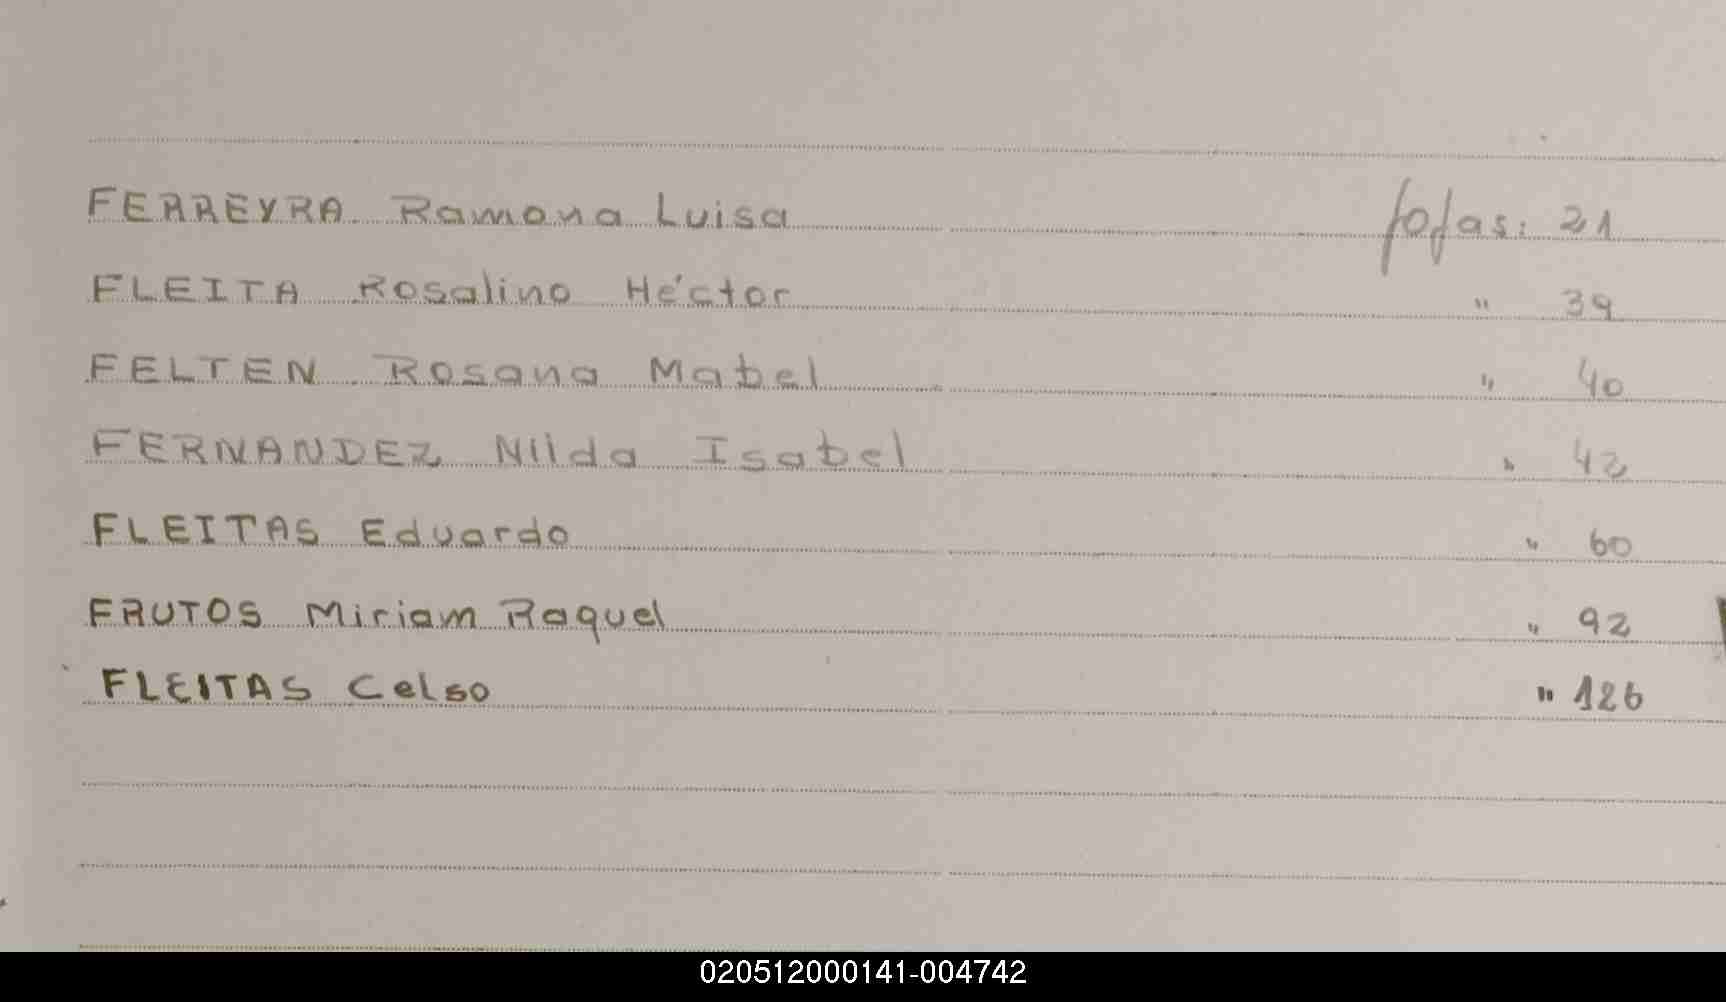 FERREYRA Ramona Luisa fojas: 21
FLEITA Rosalino Héctor " 39
FELTEN Rosana Mabel " 40
FERNANDEZ Nilda Isabel " 42
FLEITAS Eduardo " 60
FRUTOS Miriam Raquel " 92
FLEITAS Celso " 126
020512000141-004742